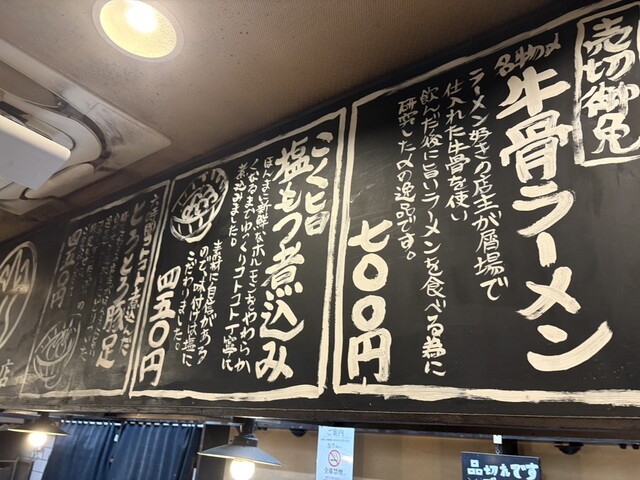 売切御免
名物〆
牛骨ラーメン
ラーメン好きの店主が屠場で
仕入れた牛骨を使い
飲んだ後に旨いラーメンを食べる為に
研究した〆の逸品です。
七〇〇円
こく旨
塩もつ煮込み
ほんまに新鮮なホルモンをやわらか
くなるまでゆっくりコトコト丁寧に
煮込みました。
素材に自信がある
ので、味付けは塩に
こだわりました。
四五〇円
とろとろ豚足
四五〇円
店
品切れです